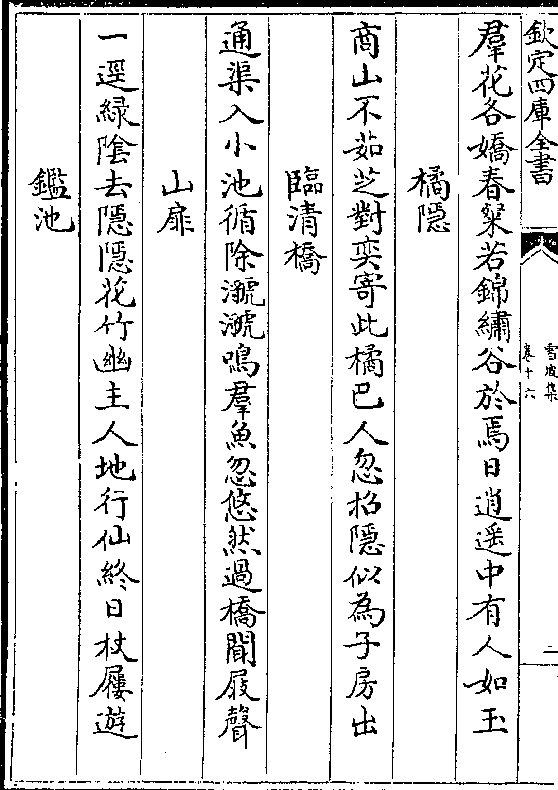 欽定四庫全書
雪坡集
卷十六
二
羣花各嬌春粲若錦繡谷於焉日逍遥中有人如玉
橘隠
商山不茹芝對奕寄此橘巴人忽招隠似為子房出
臨清橋
通渠入小池循除㶁㶁鳴羣魚忽悠然過橋聞屐聲
山扉
一逕緑陰去隠隠花竹幽主人地行仙終日杖屨遊
鑑池